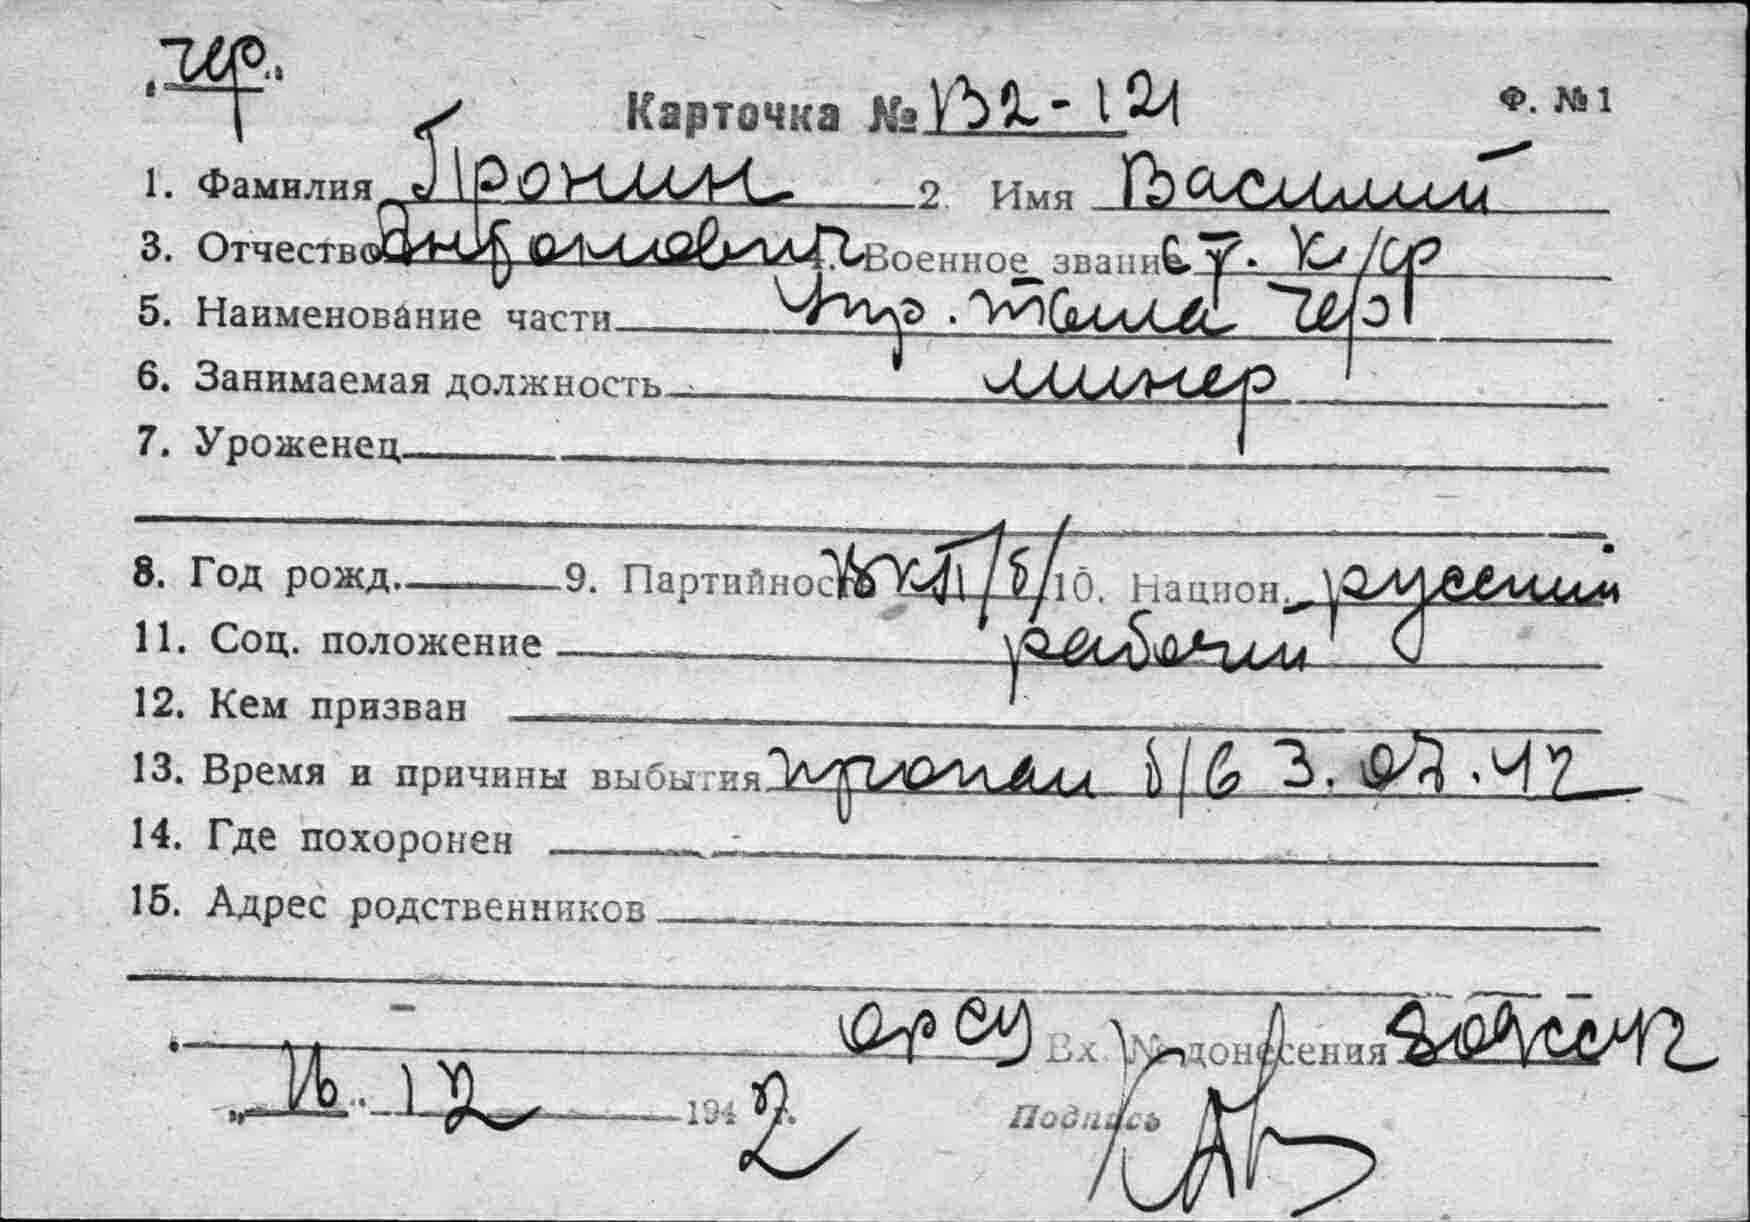 „чер."
Карточка № В2-121 Ф. № 1
1. Фамилия Пронин 2. Имя Василий
3. Отчество Антонович 4. Военное звание ст. к/ср
5. Наименование части Упр. чер
6. Занимаемая должность минер
7. Уроженец
8. Год рожд. 9. Партийность ВКП/б/ 10. Национ. русский
11. Соц. положение рабочий
12. Кем призван
13. Время и причины выбытия пропал б/в 3.07.42
14. Где похоронен
15. Адрес родственников
орсу Вх. № донесения
„16" 12 1942 г. Подпись